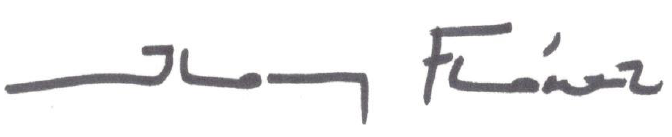 Jhony Flórez